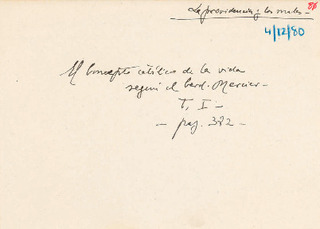 La providencia y los males -
86
4/12/80
El Concepto católico de la vida
según el Card. Mercier -
T. I -
- pag. 382 -